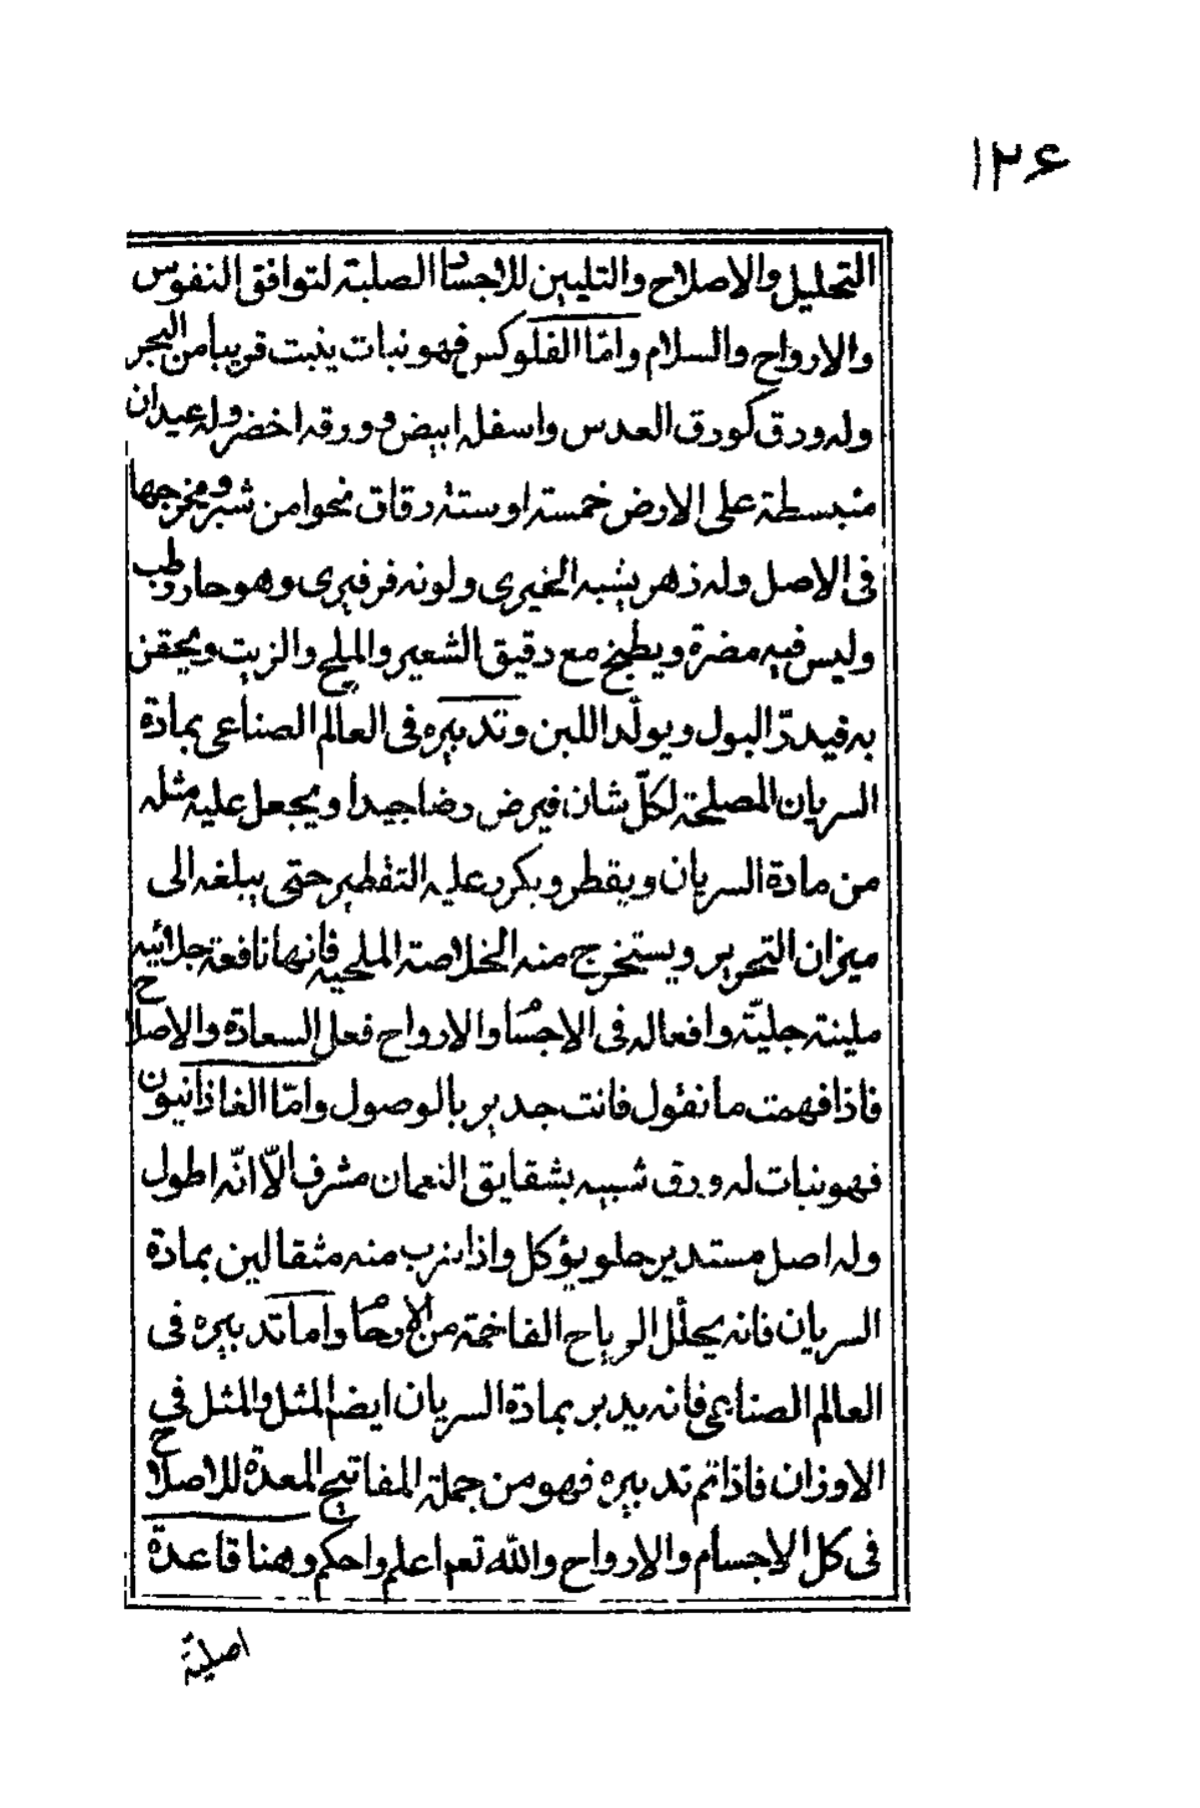 ١٢۶
التحليل والاصلاح والتليين للاجساد الصلبة لتوافق النفوس
والارواح والسلام وامّا الفلوكس فهو نبات ينبت قريبا من البحر
وله ورق كورق العدس واسفله ابيض وورقه اخضر وله عيدان
منبسطة على الارض خمسة او ستة رقاق نحوا من شبر ومخرجها
فى الاصل وله زهر يشبه الخيرى ولونه فرفيرى وهو حار رطب
وليس فيه مضرة ويطبخ مع دقيق الشعير والملح والزيت ويحقن
به فيدرّ البول ويولّد اللبن وتدبيره فى العالم الصناعى بمادة
السريان المصلحة لكلّ شان فيرض رضا جيدا ويجعل عليه مثله
من مادة السريان ويقطر ويكرر عليه التقطير حتى يبلغه الى
ميزان التحرير ويستخرج منه الخلاصة الملحية فانها نافعة جلائيه
ملينة جليّة وافعاله فى الاجسام والارواح فعل السعادة والاصلاح
فاذا فهمت ما نقول فانت جدير بالوصول وامّا الغاذانيون
فهو نبات له ورق شبيه بشقايق النعمان مشرف الّا انّه اطول
وله اصل مستدير حلو يؤكل واذا شرب منه مثقالين بمادة
السريان فانه يحلّل الرياح الفاخمة من الارحام واما تدبيره فى
العالم الصناعى فانه يدبر بمادة السريان ايضا المثل والمثل فى
الاوزان فاذا تم تدبيره فهو من جملة المفاتيح المعدة للاصلاح
فى كل الاجسام والارواح والله تعم اعلم واحكم وهنا قاعدة
اصلية